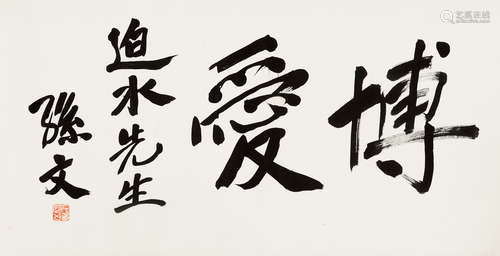 博愛
迫水先生
孫文